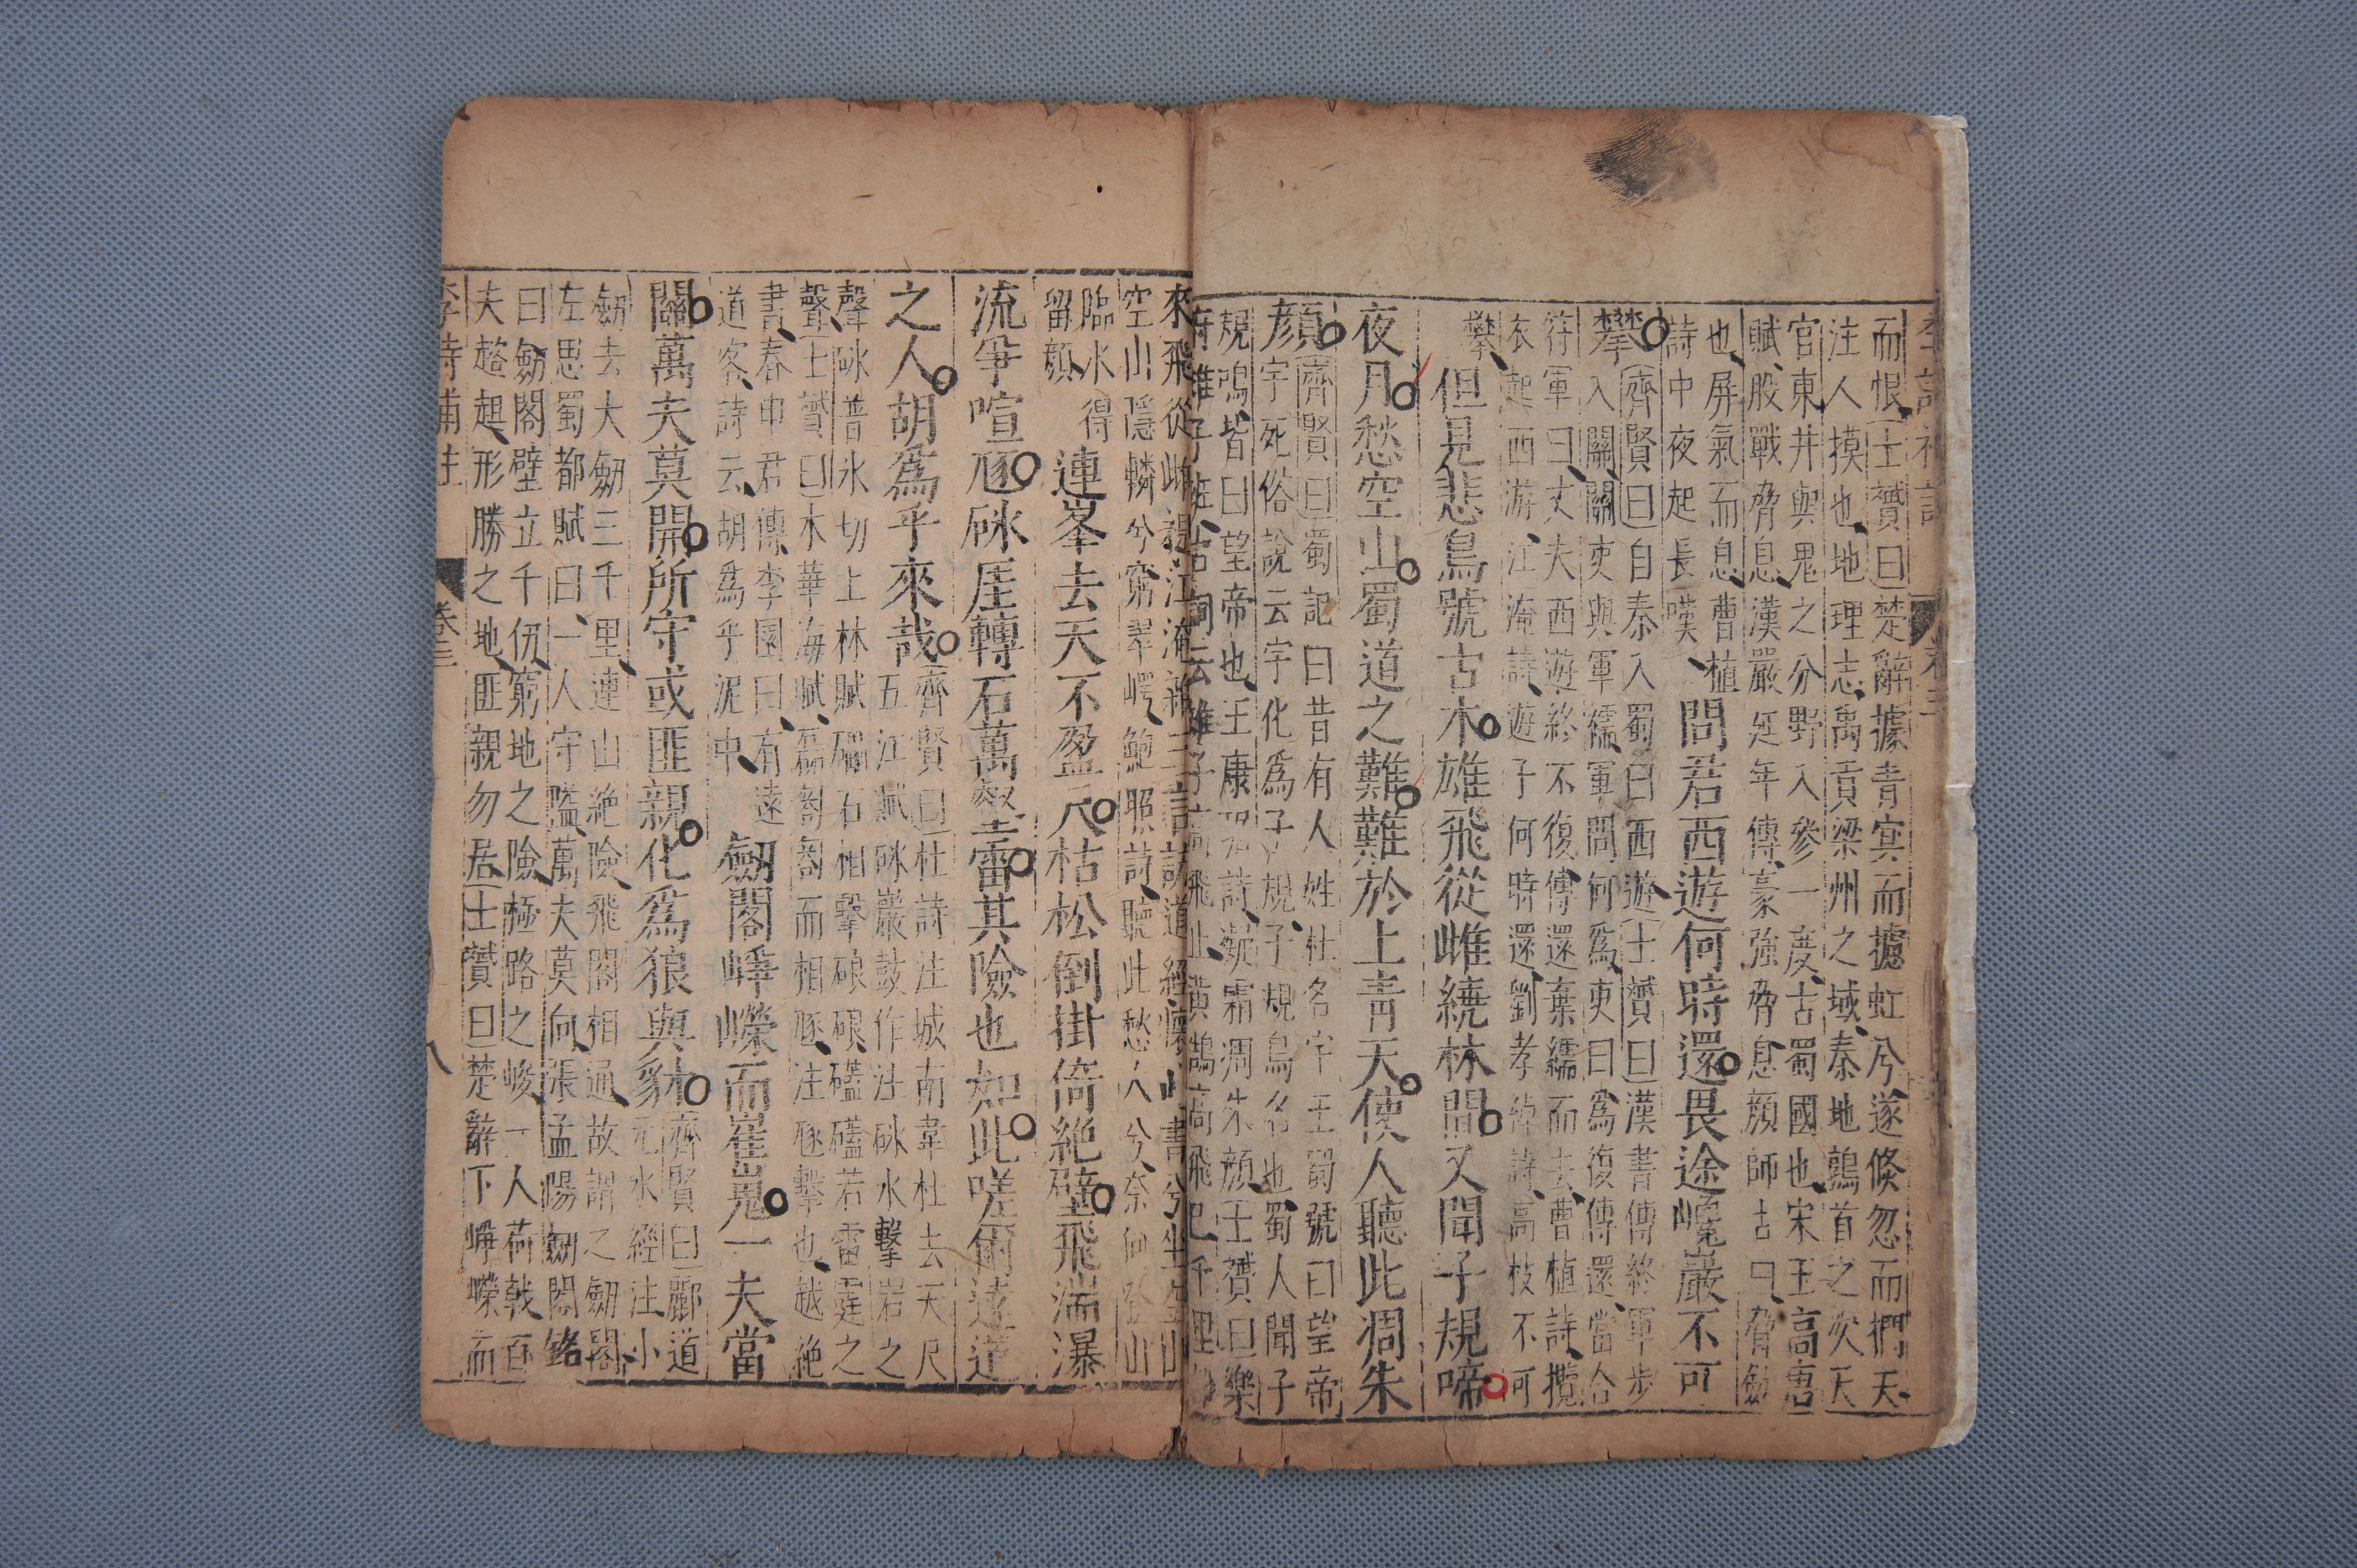 李詩補註
卷三
而恨士贇曰楚辭據青冥而攄虹兮遂倏忽而捫天
注人摸也地理志禹貢梁州之域秦地鶉首之次天
官東井輿鬼之分野入參一度古蜀國也宋玉高唐
賦股戰脅息漢嚴延年傳豪強脅息顏師古曰脅斂
也屏氣而息曹植
詩中夜起長嘆
問君西遊何時還畏途巉巖不可
攀
齊賢曰自秦入蜀曰西遊士贇曰漢書傳終軍步
入關關吏與軍繻軍問何為吏曰為復傳還當合
符軍曰丈夫西遊終不復傳還棄繻而去曹植詩攬
衣起西游江淹詩遊子何時還劉孝綽詩高枝不可
攀
但見悲鳥號古木雄飛從雌繞林間又聞子規啼
夜月愁空山蜀道之難難於上青天使人聽此凋朱
顏
齊賢曰蜀記曰昔有人姓杜名宇王蜀號曰望帝
宇死俗說云宇化為子規子規鳥名也蜀人聞子
規鳴皆曰望帝也王康琚詩凝霜凋朱顏士贇曰樂
府雉子班古詞云雉子高飛止黃鵠高飛已千里
來飛從雌視江淹
空山隱轔兮窮翠崿鮑照詩聽此愁人兮奈何登山
臨水得
留顏
連峯去天不盈尺枯松倒掛倚絕壁飛湍瀑
流爭喧豗砯厓轉石萬壑雷其險也如此嗟爾遠道
之人胡為乎來哉
齊賢曰杜詩注城南韋杜去天尺
五江賦砯巖鼓作注砯水擊岩之
聲砯普冰切上林賦礧石相擊硠硠礚礚若雷霆之
聲士贇曰木華海賦磊匒匒而相豗注豗擊也越絕
書春申君傳李園曰有遠
道客詩云胡為乎泥中
劒閣崢嶸而崔嵬一夫當
關萬夫莫開所守或匪親化為狼與豺
齊賢曰酈道
元水經注小
劒去大劒三千里連山絕險飛閣相通故謂之劒閣
左思蜀都賦曰一人守隘萬夫莫向張孟陽劒閣銘
曰劒閣壁立千仞窮地之險極路之峻一人荷戟百
夫趦趄形勝之地匪親勿居士贇曰楚辭下崢嶸而
李詩補註
卷三
八